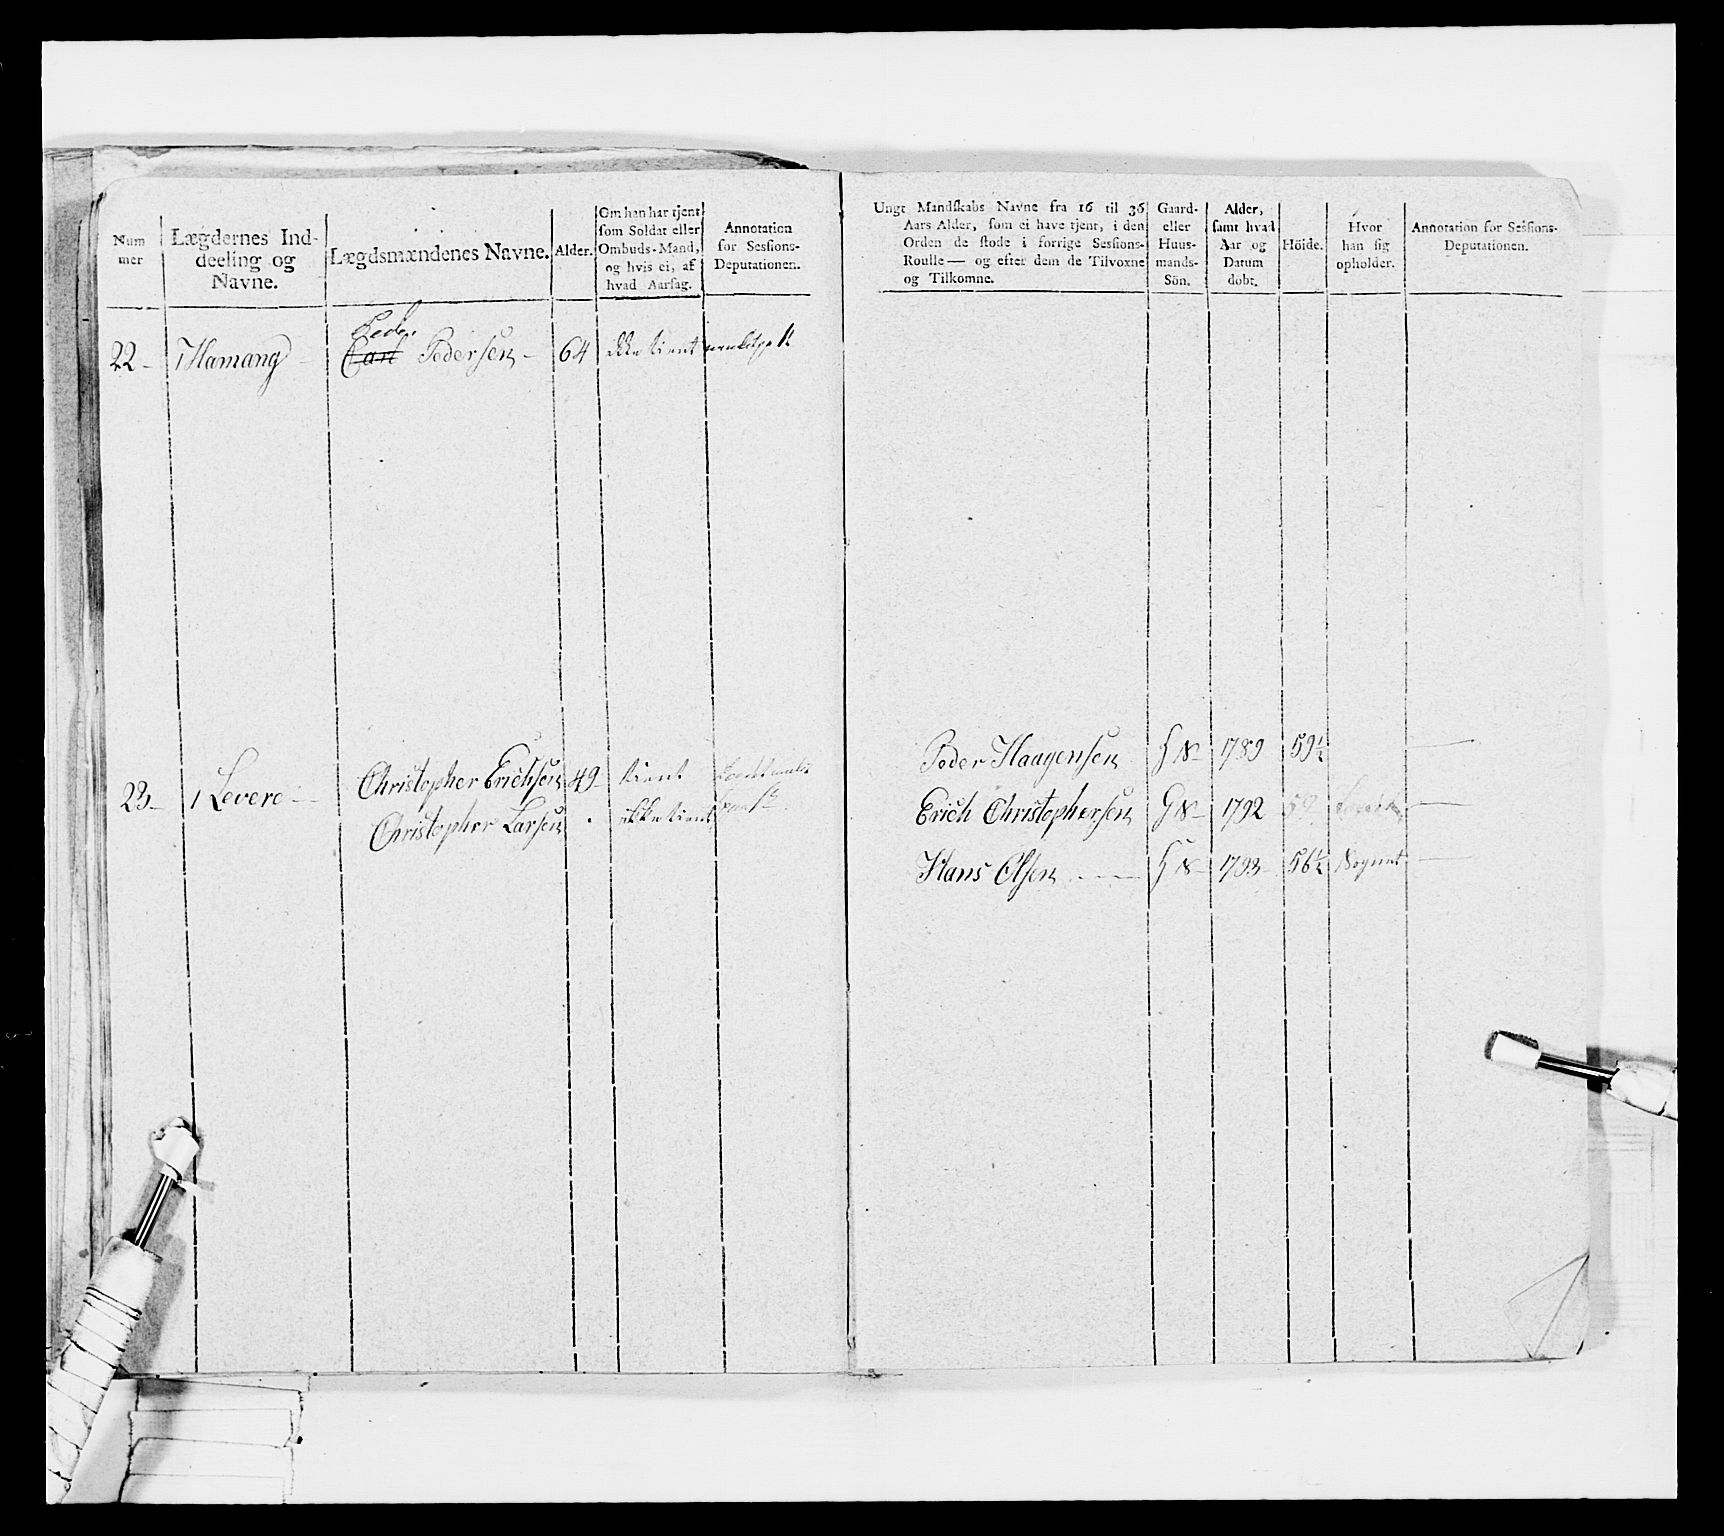 Num
mer
Lægdernes Ind-
deeling og
Navne.
Lægdsmændenes Navne.
Alder.
Om han har tjent
som Soldat eller
Ombuds-Mand,
og hvis ei, af
hvad Aarsag.
Annotation
for Sessions-
Deputationen.
Ungt Mandskabs Navne fra 16 til 36
Aars Alder, som ei have tjent, i den
Orden de stode i forrige Sessions-
Roulle — og efter dem de Tilvoxne
og Tilkomne.
Gaard-
eller
Huus-
mands-
Sön.
Alder,
samt hvad
Aar og
Datum
dobt.
Höide.
Hvor
han sig
opholder.
Annotation for Sessions-
Deputationen.
Peder
22- 1 Hamang - Carl Pedersen - 64 ikke tient
23- 1 Levere - Christopher Erichsen 49- tient
Christopher Larsen ikke tient
Peder Haagensen H S- 1789 59½
Erich Christophersen G S- 1792 59
Hans Olsen - H S- 1793- 56½